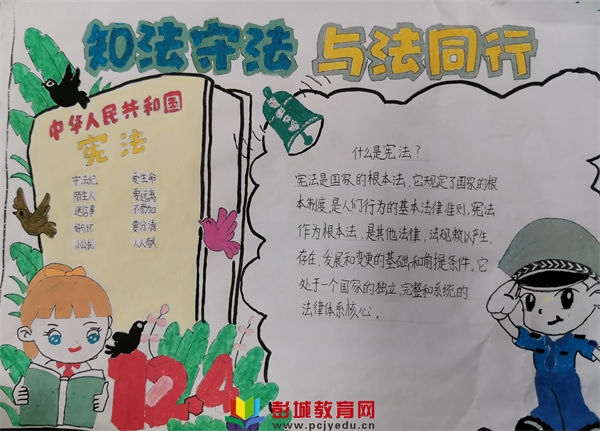 知法守法 与法同行
中华人民共和国
宪法
守法纪 爱生命
陌生人 要远离
迷信事 不参加
好与坏 要分清
小公民 人人敬
什么是宪法?
宪法是国家的根本法,它规定了国家的根
本制度,是人们行为的基本法律准则,宪法
作为根本法,是其他法律,法规赖以产生,
存在,发展和变更的基础和前提条件。它
处于一个国家的独立,完整和系统的
法律体系核心。
12.4
彭城教育网
www.pcjyedu.cn